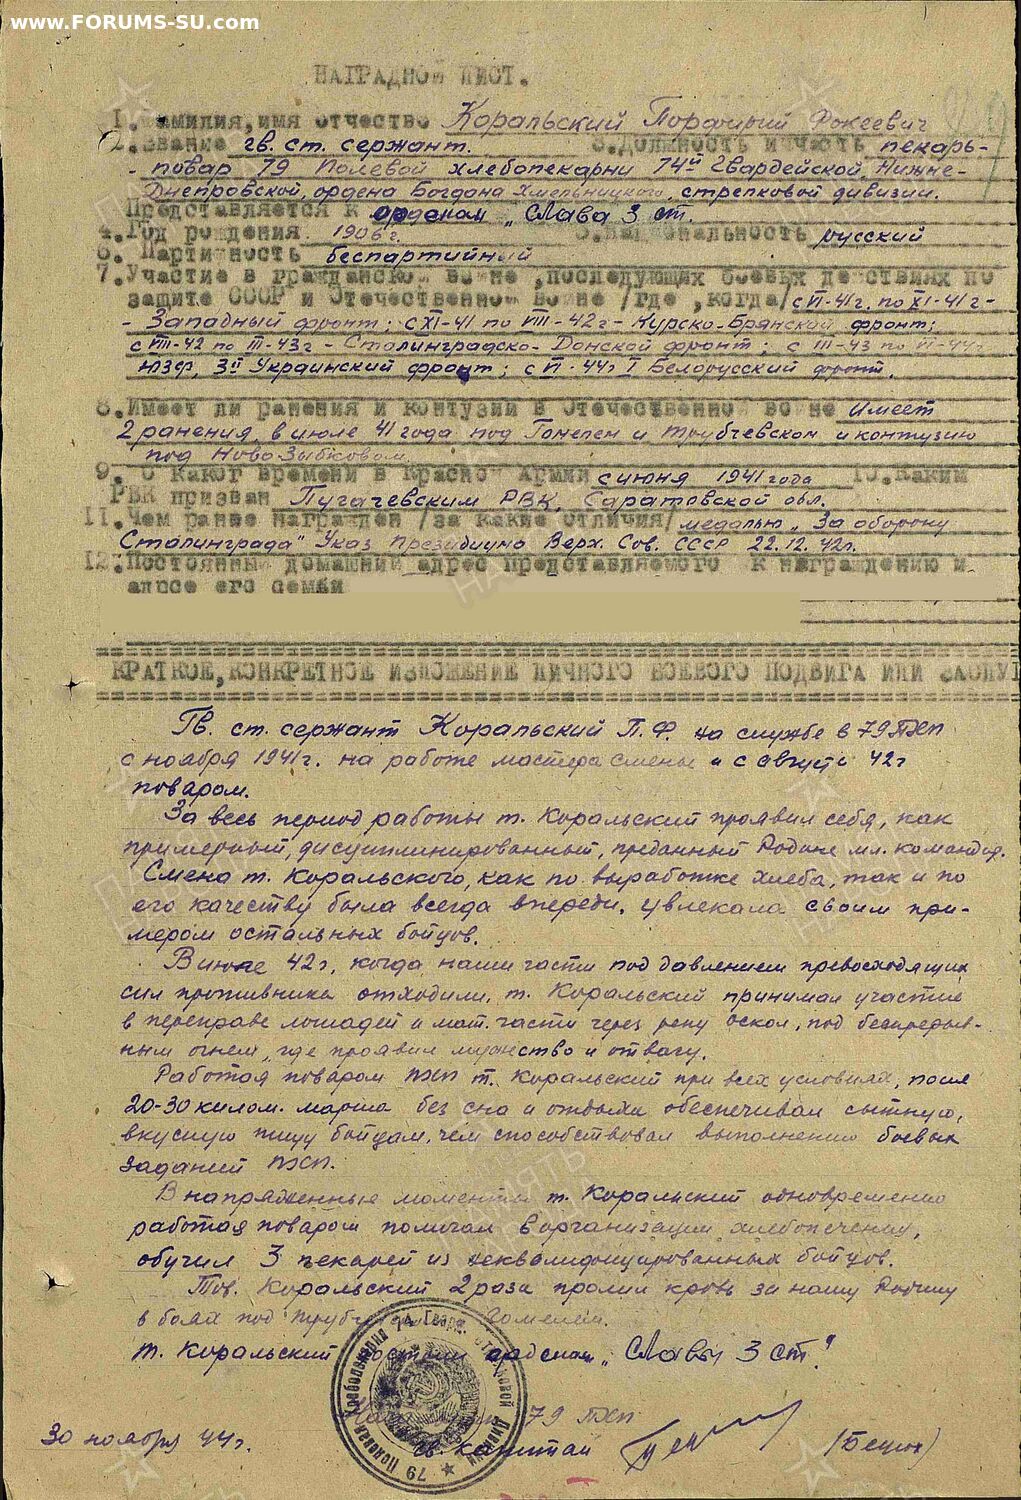 www.FORUMS-SU.com
НАГРАДНОЙ ЛИСТ.
1. Фамилия, имя отчество Коральский Порфирий Фокеевич
2. Звание гв. ст. сержант. 3. Должность и часть пекарь-
- повар 79 Полевой хлебопекарни 74й Гвардейской Нижне-
Днепровской, ордена Богдана Хмельницкого, стрелковой дивизии.
Представляется к орденом „Слава 3 ст.
4. Год рождения 1906 г. 5. Национальность русский
6. Партийность беспартийный
7. Участие в гражданской войне, последующих боевых действиях по
защите СССР и Отечественной войне /где, когда/ с VI-41г. по XI-41г-
- Западный фронт; с XI-41 по VIII-42г - Курско-Брянский фронт;
с VIII-42 по III-43г - Сталинградско-Донской фронт; с III-43 по VI-44г
ЮЗФ, 3й Украинский фронт; с VI-44г I Белорусский фронт.
8. Имеет ли ранения и контузии в Отечественной войне Имеет
2 ранения, в июле 41 года под Гомелем и Трубчевском и контузию
под Ново-Зыбковом.
9. С какого времени в Красной Армии с июня 1941 года 10. Каким
РВК призван Пугачевским РВК, Саратовской обл.
11. Чем ранее награжден /за какие отличия/ медалью „За оборону
Сталинграда" Указ Президиума Верх. Сов. СССР 22.12.42г.
12. Постоянный домашний адрес представляемого к награждению и
адрес его семьи
КРАТКОЕ, КОНКРЕТНОЕ ИЗЛОЖЕНИЕ ЛИЧНОГО БОЕВОГО ПОДВИГА ИЛИ ЗАСЛУГ
Гв. ст. сержант Коральский П.Ф. на службе в 79 ПХП
с ноября 1941г. на работе мастера смены и с августа 42г
поваром.
За весь период работы т. Коральский проявил себя, как
примерный, дисциплинированный, преданный Родине мл. командир.
Смена т. Коральского, как по выработке хлеба, так и по
его качеству была всегда впереди, увлекала своим при-
мером остальных бойцов.
В июне 42г, когда наши части под давлением превосходящих
сил противника отходили, т. Коральский принимал участие
в переправе лошадей и мат. части через реку Оскол, под беспрерыв-
ным огнем, где проявил мужество и отвагу.
Работая поваром ПХП т. Коральский при всех условиях, после
20-30 килом. марша без сна и отдыха обеспечивал сытную,
вкусную пищу бойцам, чем способствовал выполнению боевых
заданий ПХП.
В напряженные моменты т. Коральский одновременно
работая поваром помогал в организации хлебопечения,
обучил 3 пекарей из неквалифицированных бойцов.
Тов. Коральский 2 раза пролил кровь за нашу Родину
в боях под Гомелем.
т. Коральский достоин орденом „Славы 3 ст."
79 ПХП
гв. капитан
30 ноября 44г.